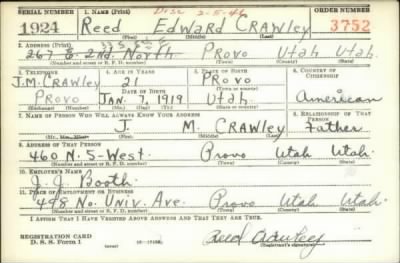 SERIAL NUMBER 1. NAME (Print) ORDER NUMBER
1924 Reed Edward Crawley 3752
(First) (Middle) (Last)
2. ADDRESS (Print)
267 E. 2nd. North Provo Utah Utah.
(Number and street or R. F. D. number) (Town) (County) (State)
3. TELEPHONE 4. AGE IN YEARS 5. PLACE OF BIRTH 6. COUNTRY OF CITIZENSHIP
J.M. Crawley 21 Provo
DATE OF BIRTH (Town or county)
Provo Jan. 17 1919 Utah. American
(Exchange) (Number) (Mo.) (Day) (Yr.) (State or country)
7. NAME OF PERSON WHO WILL ALWAYS KNOW YOUR ADDRESS 8. RELATIONSHIP OF THAT PERSON
J. M. Crawley Father
(Mr., Mrs., Miss) (First) (Middle) (Last)
9. ADDRESS OF THAT PERSON
460 N. 5-West. Provo Utah Utah.
(Number and street or R. F. D. number) (Town) (County) (State)
10. EMPLOYER'S NAME
J. J. Booth.
11. PLACE OF EMPLOYMENT OR BUSINESS
498 No. Univ. Ave. Provo Utah Utah.
(Number and street or R. F. D. number) (Town) (County) (State)
I AFFIRM THAT I HAVE VERIFIED ABOVE ANSWERS AND THAT THEY ARE TRUE.
REGISTRATION CARD
D. S. S. Form 1 Reed Crawley
(Registrant's signature)